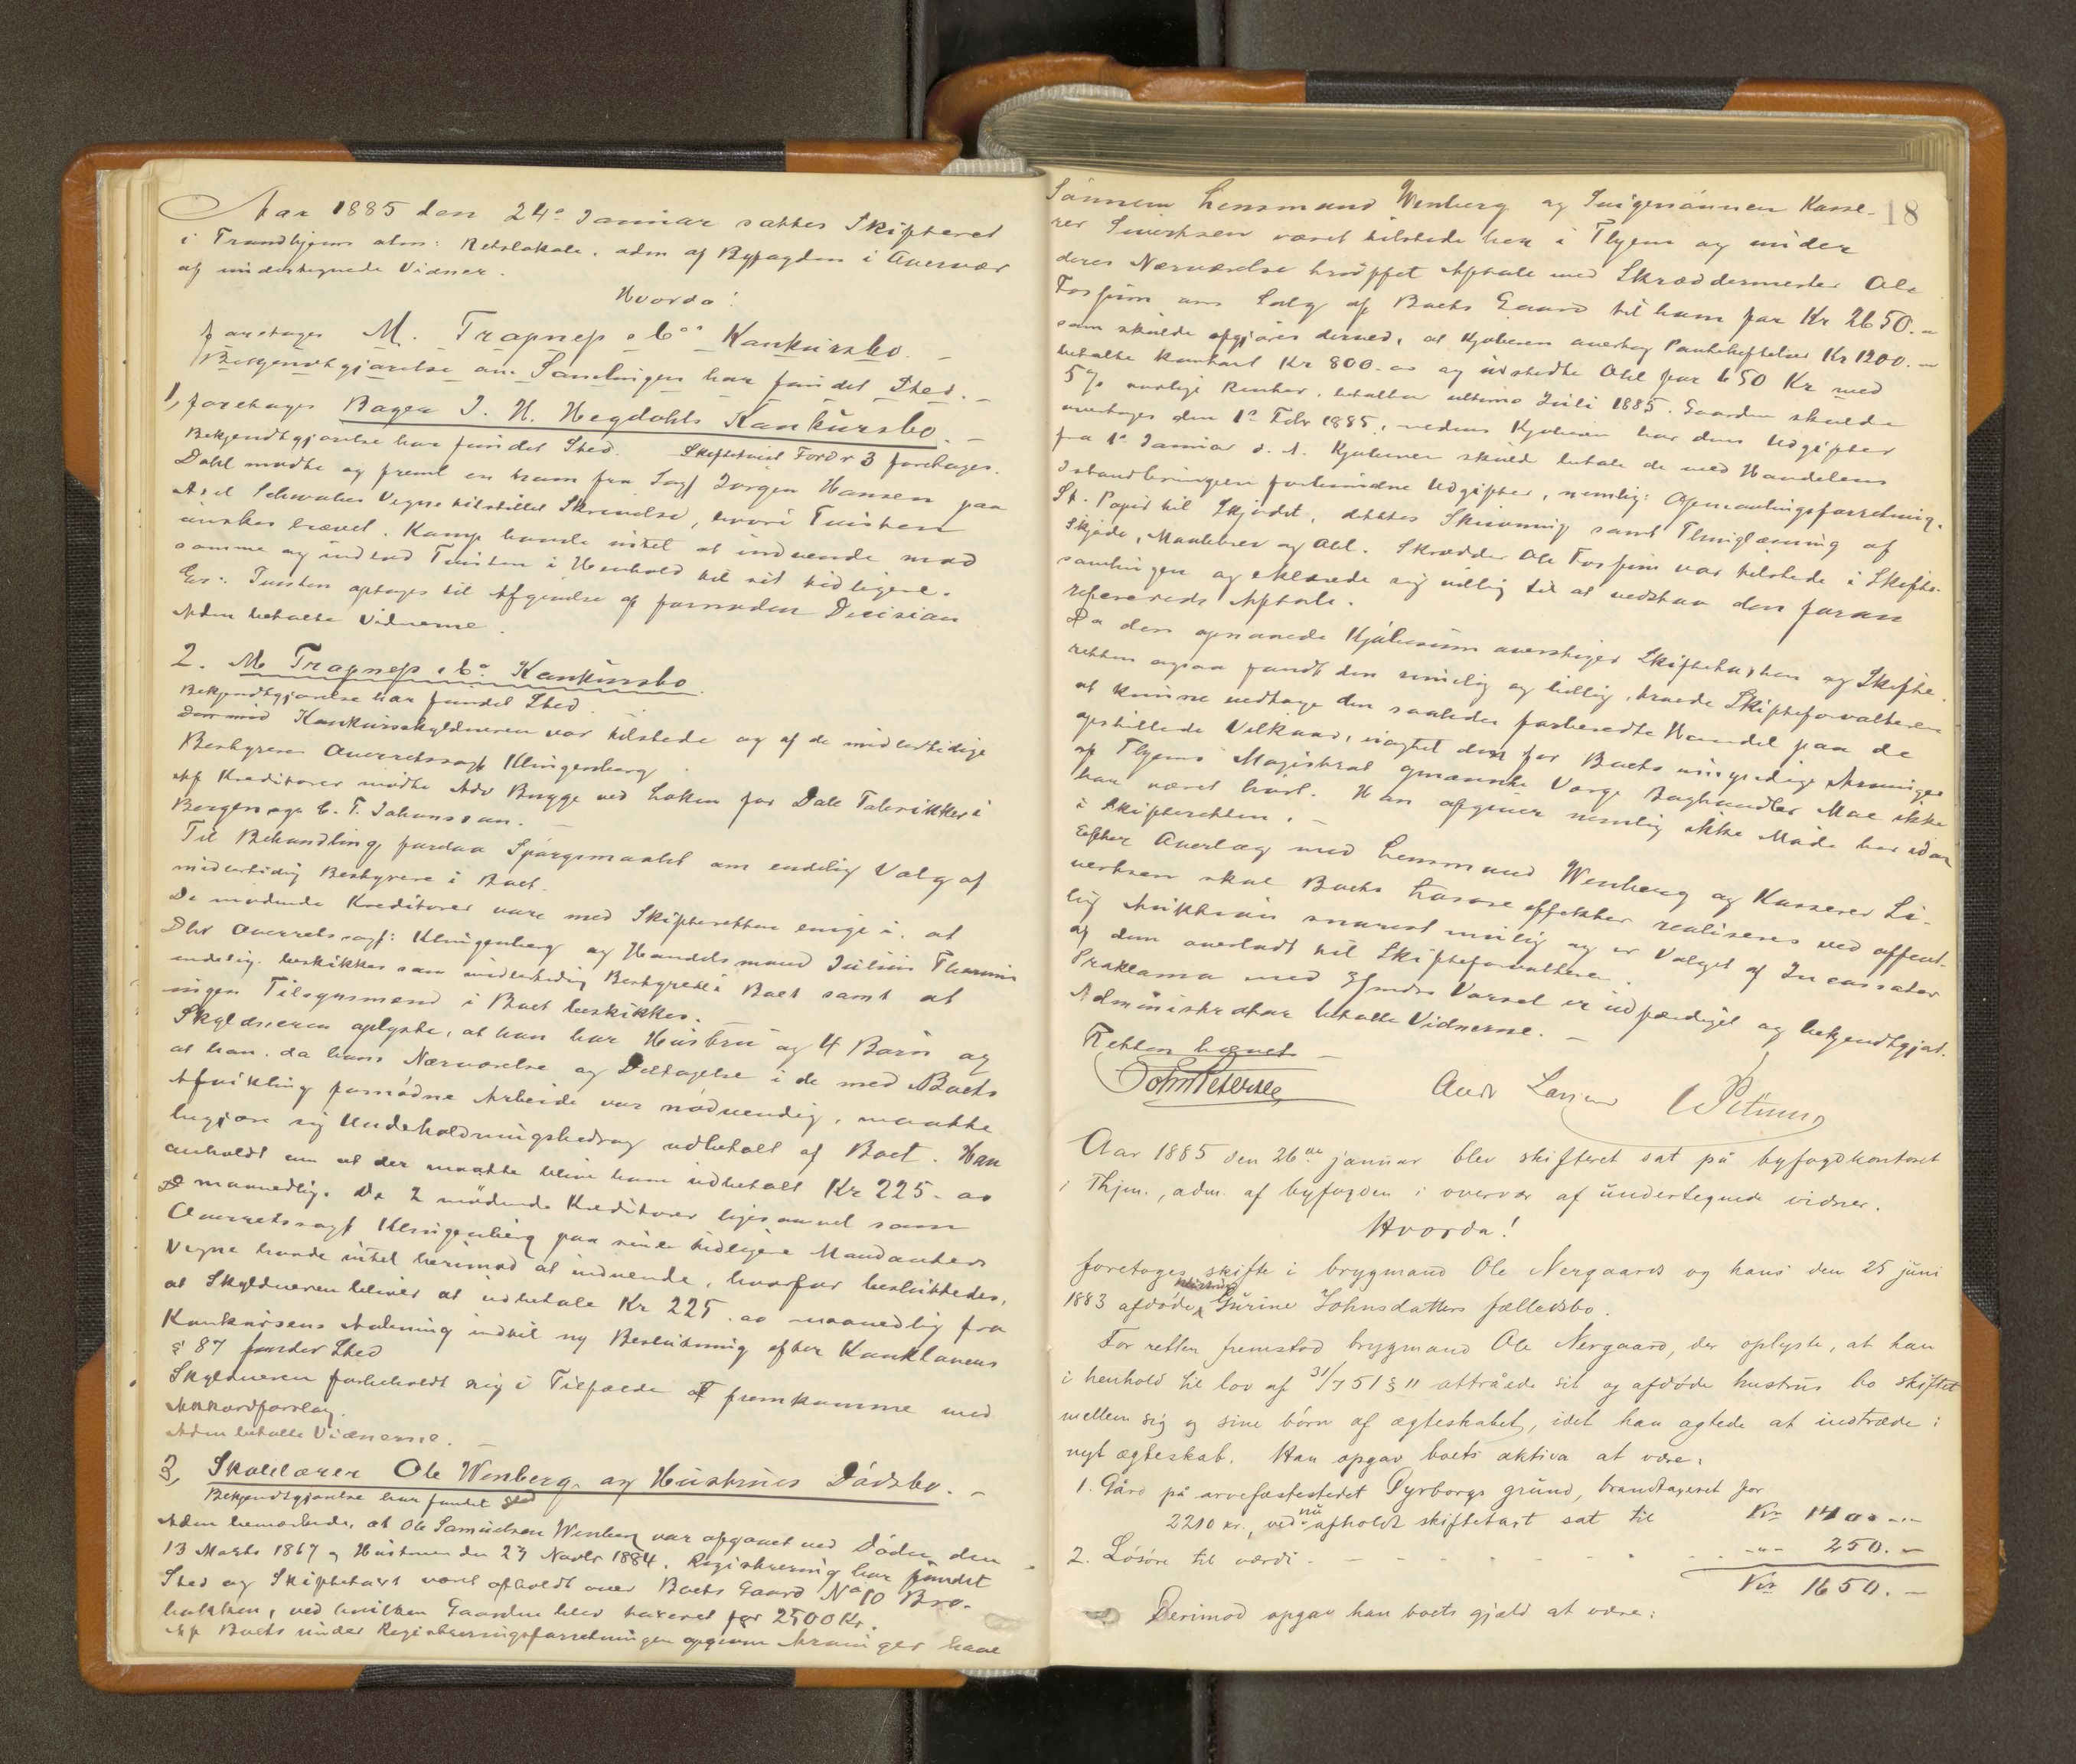 Aar 1885 den 24de Januar sattes Skifteret
i Trondhjems alm: Retslokale, adm af Byfogden i Overvær
af undertegnede Vidner.
Hvorda!
foretoges M. Trapness & Co Konkursbo. -
Bekjendtgjørelse om Samlingen har fundet Sted. -
1, foretoges Bager J. H. Hegdahls Konkursbo. -
Bekjendtgjørelse har fundet Sted. Skiftetvist Fordr 3 foretoges.
Dahl mødte og freml en ham fra Sagf Jørgen Hansen paa
Axel Schwabes Vegne tilstillet Skrivelse, hvori Tvisten
ønskes hævet. Kamp havde intet at indvende mod
samme og indlod Tvisten i Henhold til sit tidligere.
Tvisten optoges til Afgivelse af fornøden Decision
Adm betalte Vidnerne.
2. M Trapness & Co Konkursbo.
Bekjendtgjørelse har fundet Sted.
Konkursskyldneren var tilstede og af de midlertidige
Bestyrere Overretssagf Klingenberg.
Af Kreditorer mødte Adv Bugge ved Løken for Dale Fabrikker i
Bergen og C. F. Johansson. -
Til Behandling forelaa Spørgsmaalet om endelig Valg af
midlertidig Bestyrere i Boet.
De mødende Kreditorer vare med Skifteretten enige i, at
Dhr Overretssagf: Klingenberg og Handelsmand Julius Thamm
endelig beskikkes som midlertidig Bestyrelse i Boet samt at
ingen Tilsynsmænd i Boet beskikkes.
Skyldneren oplyste, at han har Hustru og 4 Børn og
at han, da hans Nærværelse og Deltagelse i de med Boets
Afvikling fornødne Arbeide var nødvendig, maatte
begjære sig Underholdningsbidrag udbetalt af Boet. Han
anholdt om at der maatte blive ham udbetalt Kr 225- oo
maanedlig. De 2 mødende Kreditorer ligesaavel som
Overretssagf Klingenberg paa sine tidligere Mandanters
Vegne havde intet herimod at indvende, hvorfor besluttedes,
at Skyldneren bliver at udbetale Kr 225.oo maanedlig fra
Konkursens Aabning indtil ny Beslutning efter Konklovens
§ 87 finder Sted
Skyldneren forbeholdt sig i Tilfælde at fremkomme med
Akkordforslag.
Adm betalte Vidnerne. -
3, Skolelærer Ole Wenberg og Hustrues Dødsbo. -
Bekjendtgjørelse har fundet Sted
Adm bemærkede, at Ole Samuelsen Wenberg var afgaaet ved Døden den
13 Marts 1867 og Hustruen den 27 Novbr 1884. Registrering har fundet
Sted og Skiftetaxt været afholdt over Boets Gaard No 10 Bro-
bakken, ved hvilken Gaarden blev taxeret for 2500 Kr.
Af Boets under Registreringsforretningen opgivne Arvinger have
18
Sønnen Lensmand Wenberg og Svigersønnen Kasse-
rer Sivertsen været tilstede her i Thjem og under
deres Nærværelse truffet Aftale med Skræddermester Ole
Fossum om Salg af Boets Gaard til ham for Kr 2650.-
som skulde afgjøres derved, at Kjøberen overtog Pantehæftelser Kr 1200.-
betalte kontant Kr 800.oo og udstedte Obl for 650 Kr med
5% aarlige Renter, betalbar ultimo Juli 1885. Gaarden skulde
overtages den 1ste Febr 1885, medens Kjøberen har dens Udgifter
fra 1ste Januar d. A. Kjøberen skuld betale de med Handelens
Istandbringen forbundne Udgifter, nemlig: Opmaalingsforretning,
St. Papir til Skjødet, dettes Skrivning samt Thinglæsning af
Skjøde, Maalebrev og Obl. Skrædder Ole Fossum var tilstede i Skifte-
samlingen og erklærede sig villig til at vedstaa den foran
refererede Aftale.
Da den opnaaede Kjøbesum overstiger Skiftetaxten og Skifte-
retten ogsaa fandt den rimelig og billig, troede Skifteforvalteren
at kunne vedtage den saaledes forberedte Handel paa de
opstillede Vilkaar, uagtet den for Boets umyndige Arvinger
af Thjems Magistrat opnævnte Værge Boghandler Moe ikke
har været hørt. Han afgiver nemlig ikke Møde her idag
i Skifteretten. -
Efter Overlæg med Lensmand Wenberg og Kasserer Si-
vertsen skal Boets Løsøreeffekter realiseres ved offent-
lig Auktion snarest mulig og er Valget af Incassator
af dem overladt til Skifteforvalteren.
Proklama med 3 Mdrs Varsel er udfærdiget og bekjendtgjort.
Administrator betalte Vidnerne. -
Retten hævet -
John Petersen
Andr Larsen
Aar 1885 den 26de januar blev skifteret sat på byfogdkontoret
i Thjm., adm. af byfogden i overvær af undertegnede vidner.
Hvorda!
foretoges skifte i brygmand Ole Nergaards og hans den 25 juni
1883 afdøde hustru Gurine Johnsdatters fællesbo.
For retten fremstod brygmand Ole Nergaard, der oplyste, at han
i henhold til lov af 31/7 51 § 11 attråede sit og afdøde hustrus bo skiftet
mellem sig og sine børn af ægteskabet, idet han agtede at indtræde i
nyt ægteskab. Han opgav boets aktiva at være:
1. Gård på arvefæstestedet Dyrborgs grund, brandtaxeret for
2210 kr., ved nu afholdt skiftetaxt sat til Kr 1400.-
2. Løsøre til værdi - - - - - - " 250.-
Kr 1650.-
Derimod opgav han boets gjæld at være: